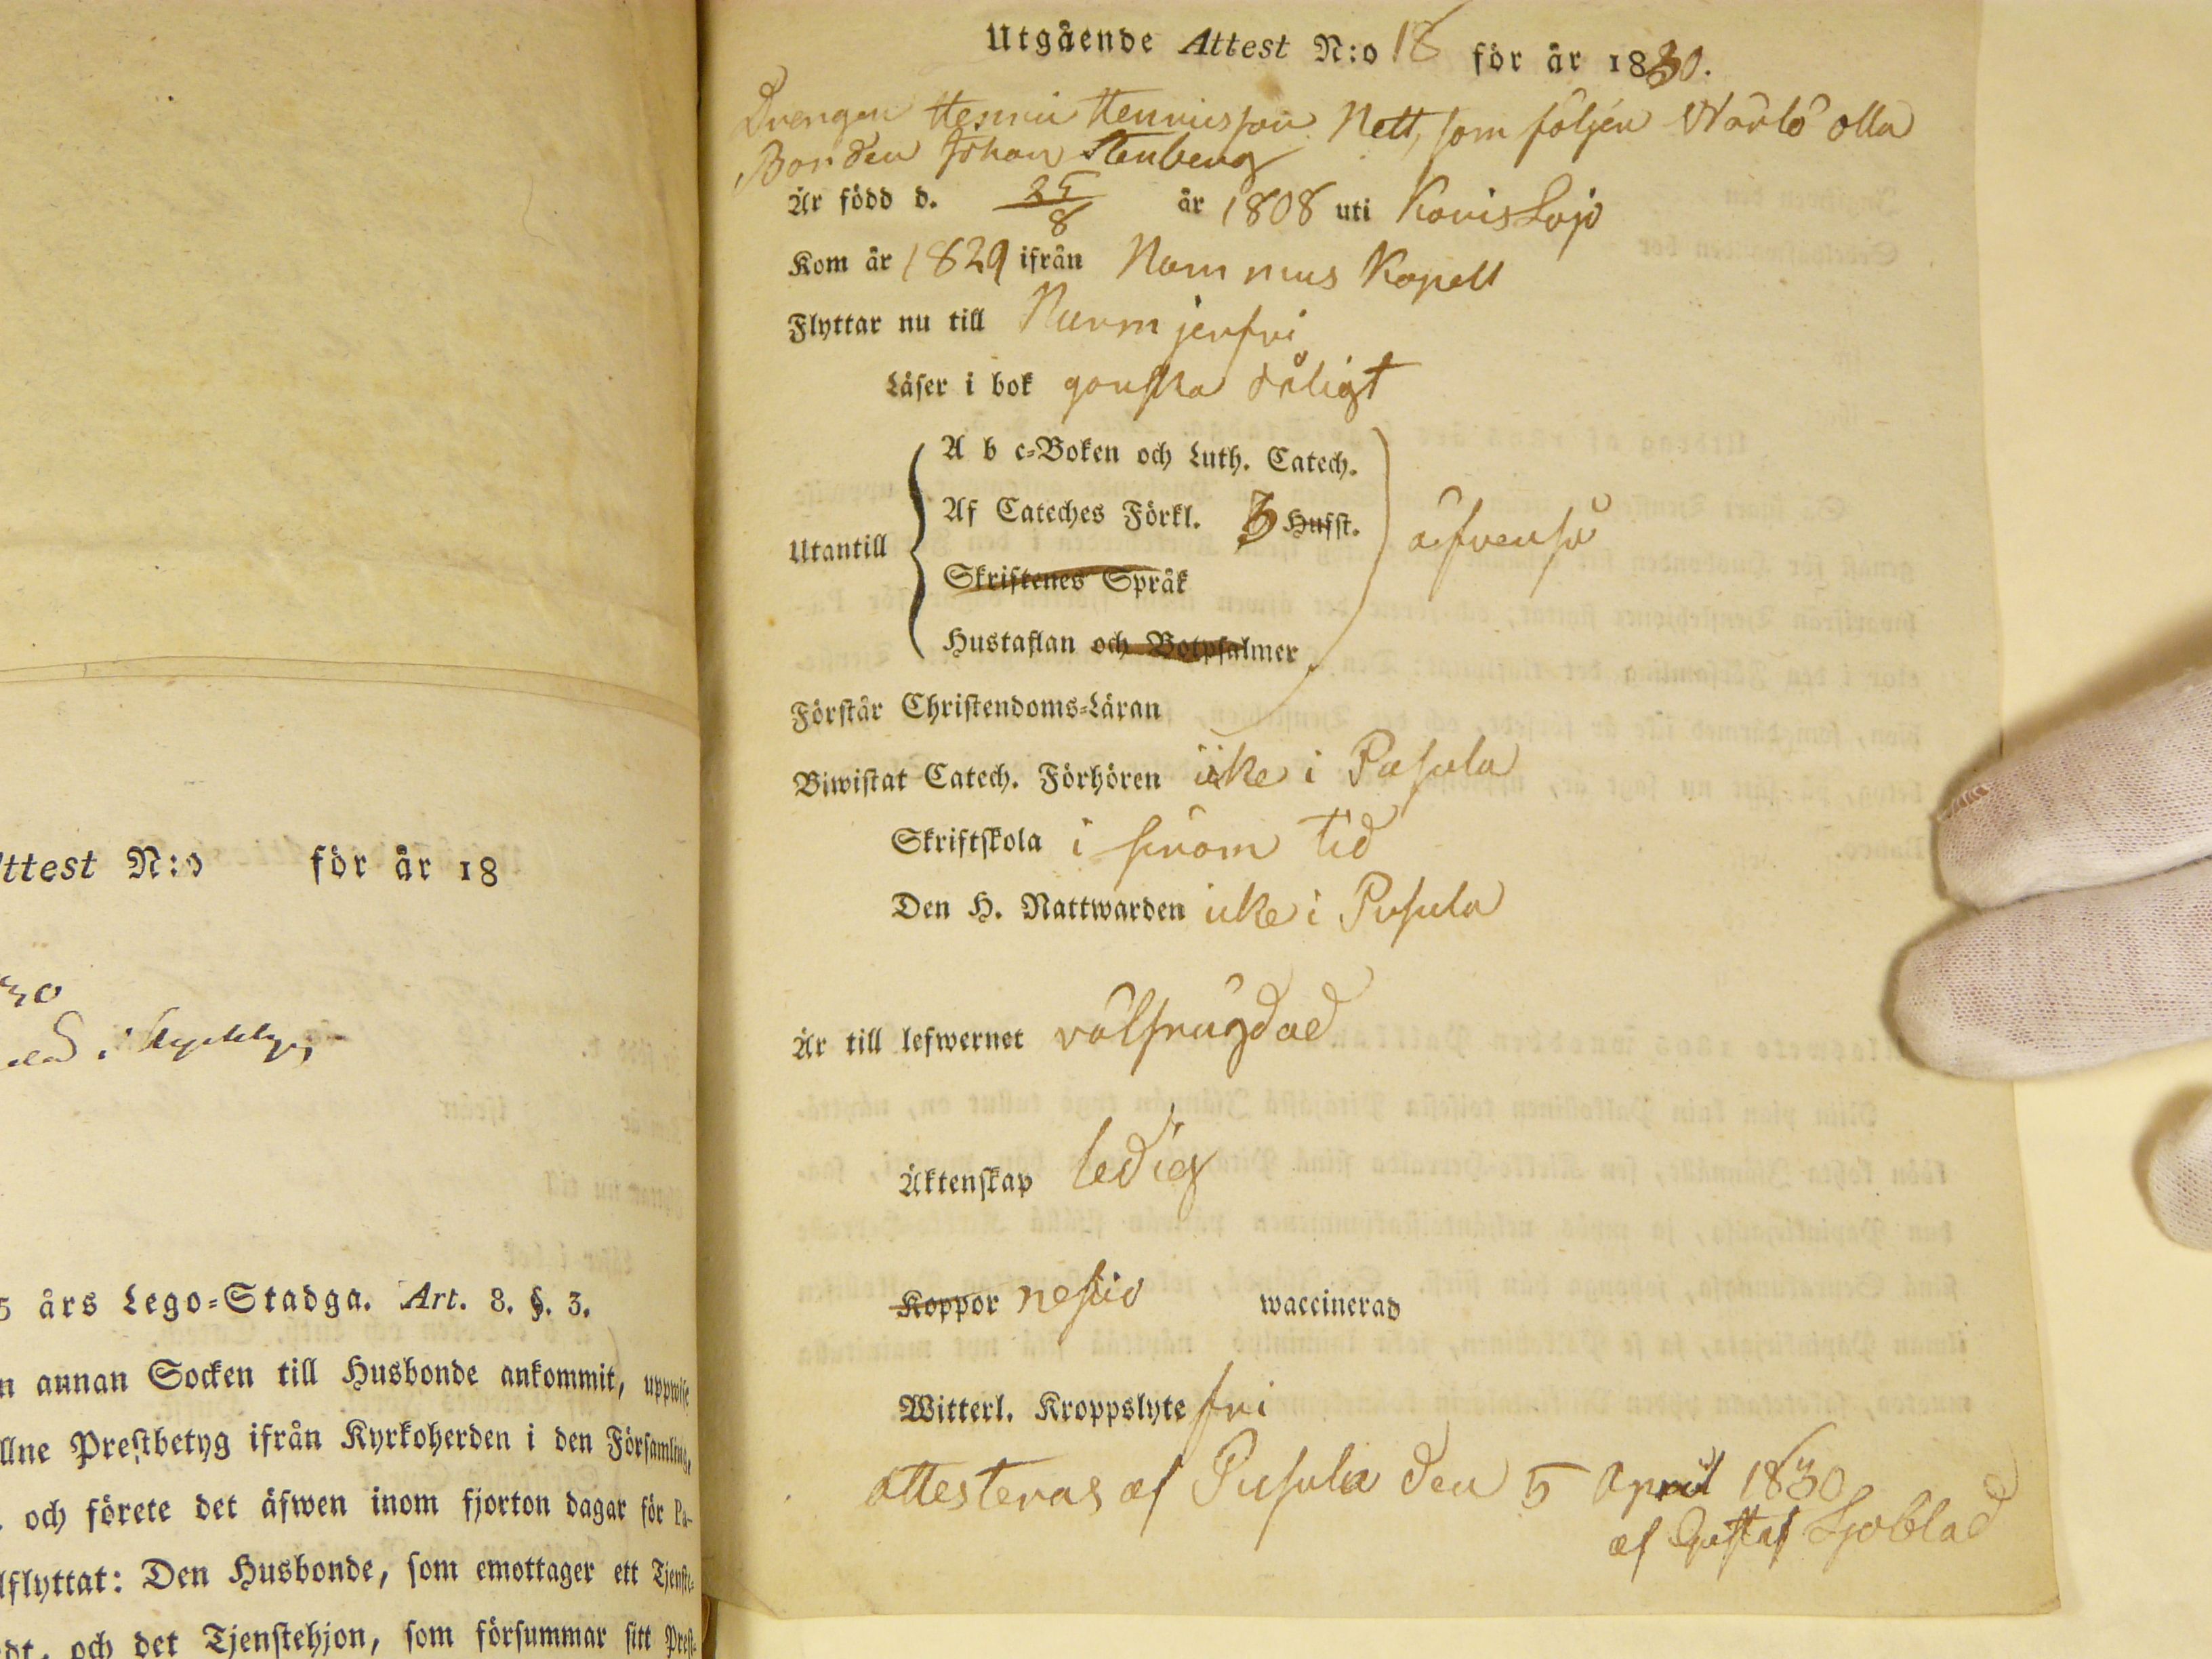 ttest N:o för år 18
30
5 års Lego-Stadga. Art. 8. §. 3.
n annan Socken till Husbonde ankommit, uppwise
llne Prestbetyg ifrån Kyrkoherden i den Församling,
. och förete det äfwen inom fjorton dagar för Pa-
lflyttat: Den Husbonde, som emottager ett Tjenste-
dt, och det Tjenstehjon, som försummar sitt Prest-
Utgående Attest N:o 18 för år 1830.
Drengen Henric Henricsson Nett, som följer Warlö olla
Bonden Johan Stenberg
Är född d. 25/8 år 1808 uti Karis Lojo
Kom år 1829 ifrån Nummis Kapell
Flyttar nu till Nurmijerfvi
Läser i bok ganska dåligt
Utantill
A b c-Boken och Luth. Catech.
Af Cateches Förkl. 3 Hufst.
Skriftenes Språk
Hustaflan och Botpsalmer
äfvenså
Förstår Christendoms-Läran
Biwistat Catech. Förhören icke i Pusula
Skriftskola i sinom tid
Den H. Nattwarden icke i Pusula
Är till lefwernet välfrägdad
Äktenskap ledig
Koppor nescio waccinerad
Witterl. Kroppslyte fri
attesteras af Pusula den 5 April 1830
af Gustaf Sjöblad